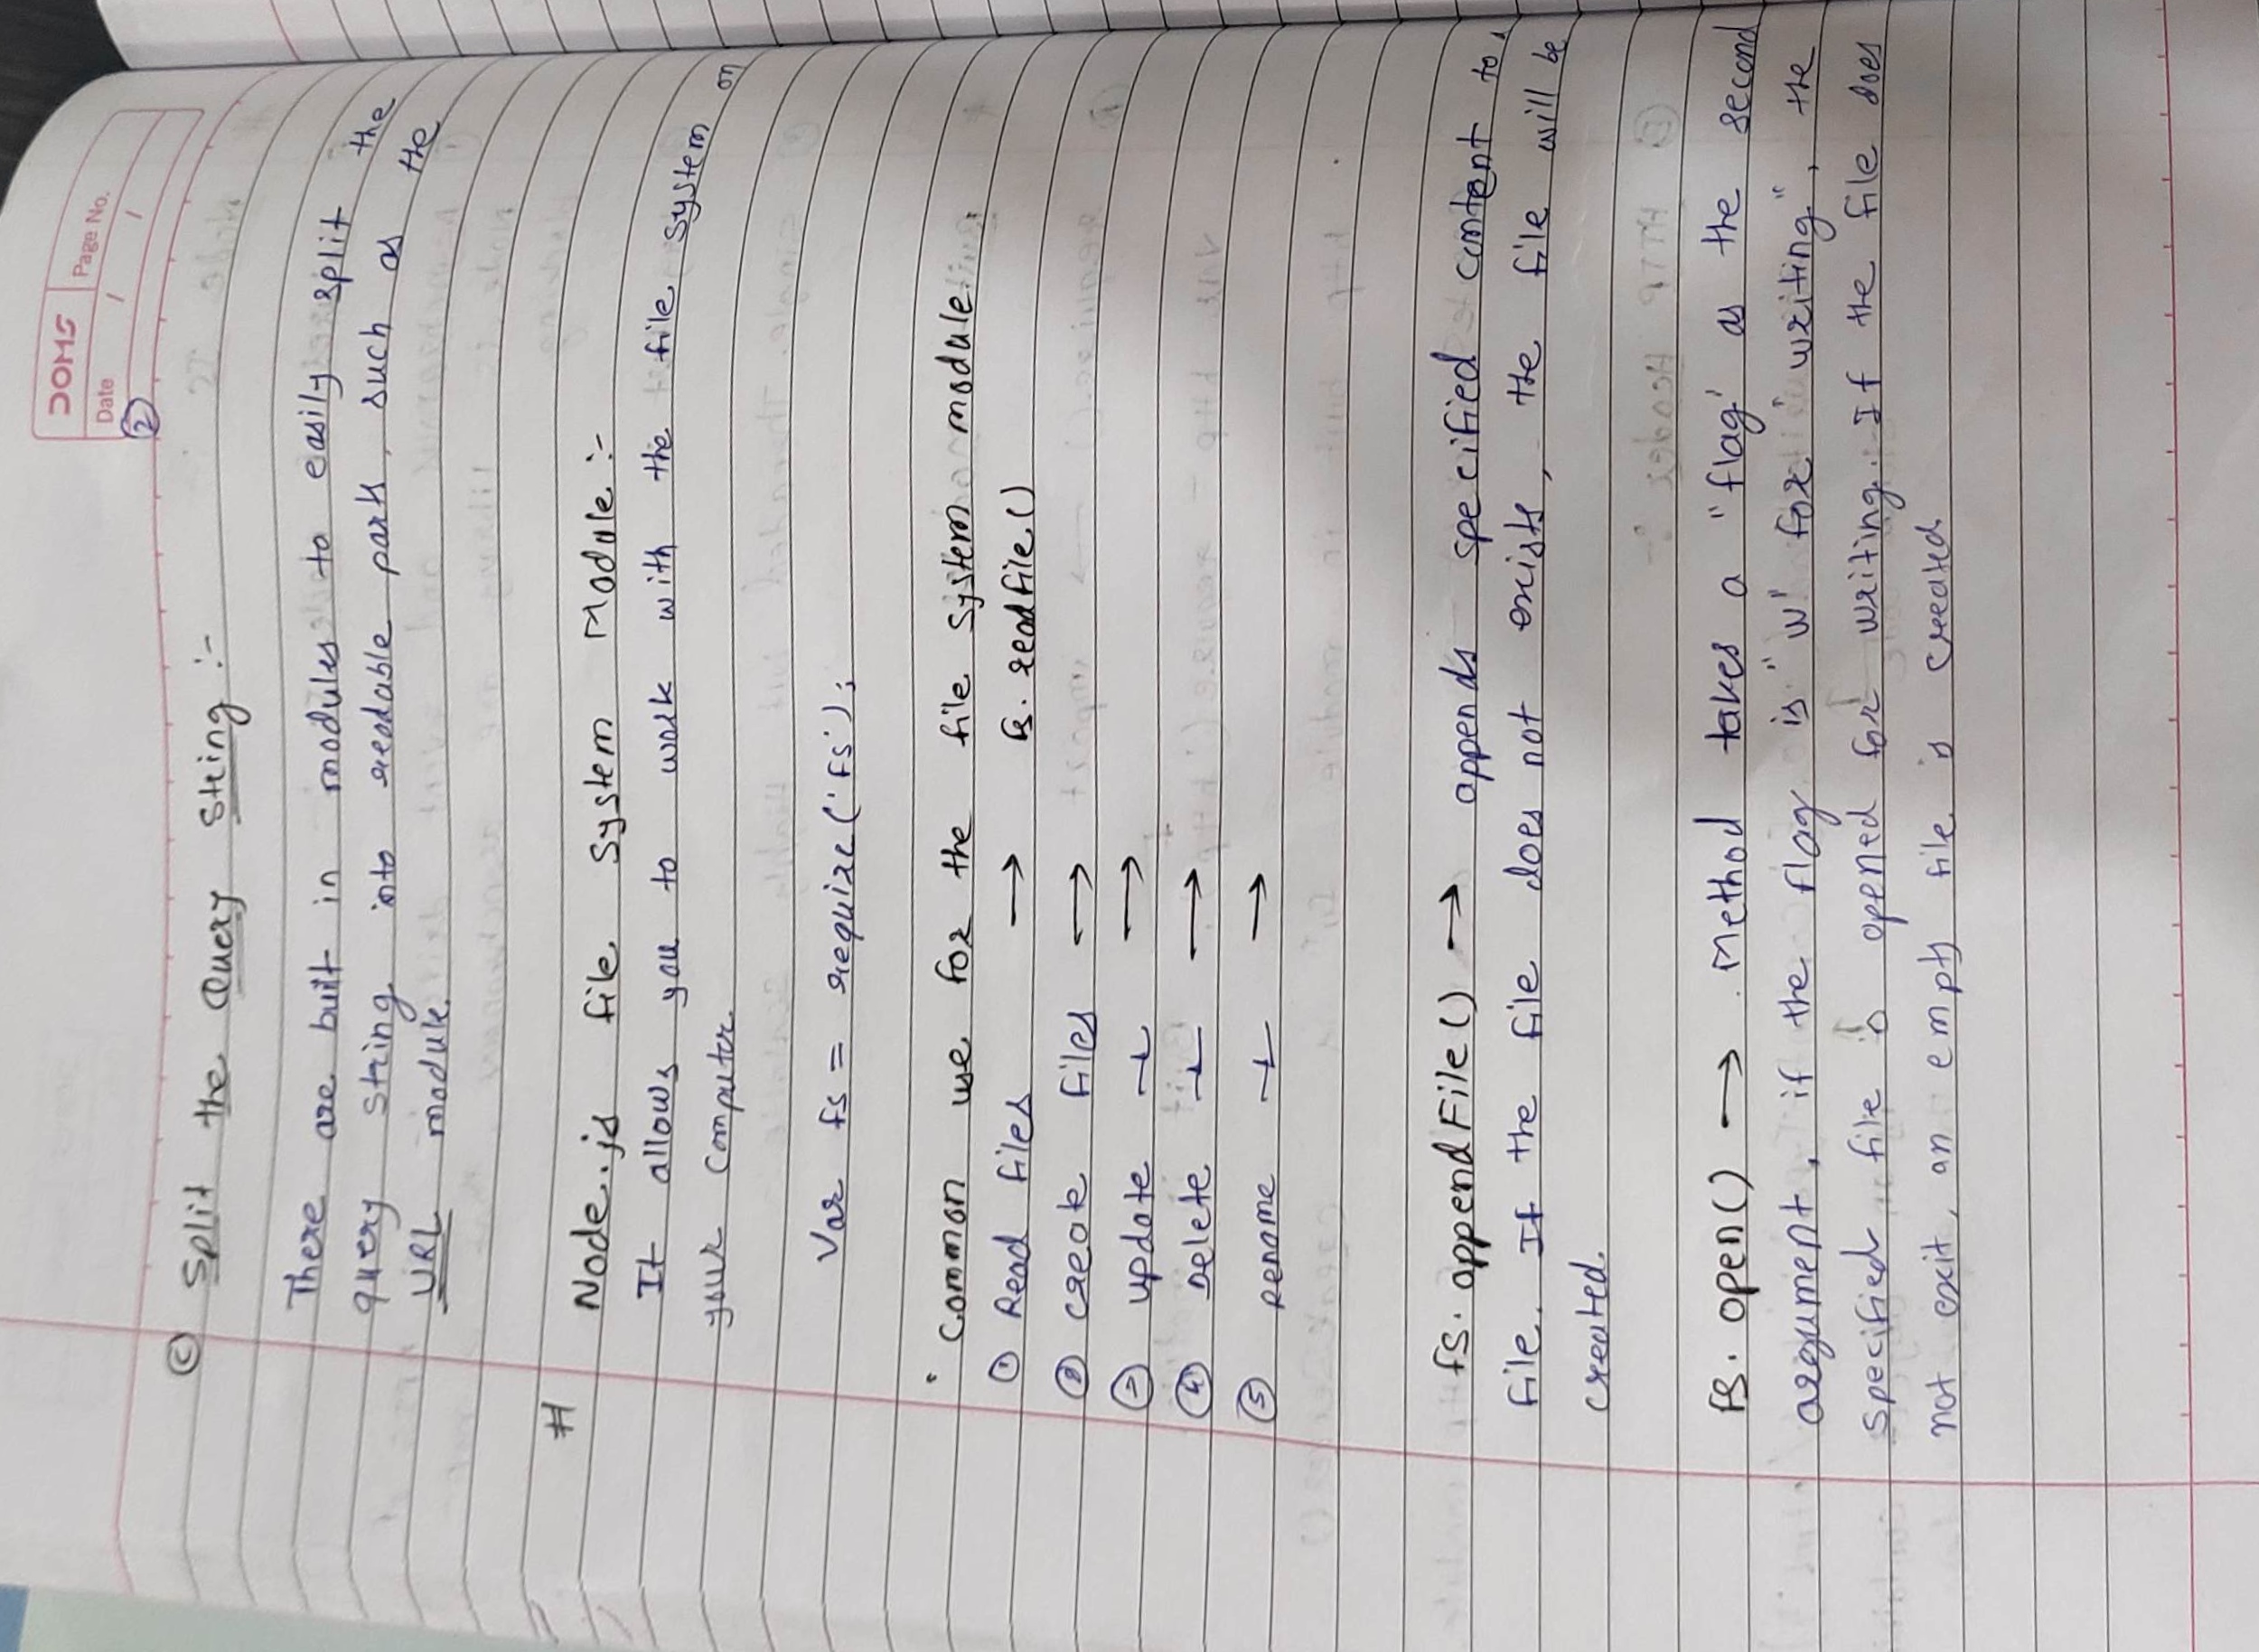 DOMS
Page No.
Date / /
②
Ⓒ Split the Query String :-
There are built in modules to easily split the
query string into readable parts, such as the
URL module.
# Node.js file System Module :-
It allows you to work with the file system on
your computer.
Var fs = require('fs');
• Common use for the file system module.
① Read files → fs.readfile()
② create files →
③ update →
④ Delete →
⑤ rename →
fs.appendFile() → appends specified content to a
file. If the file does not exists, the file will be
created.
fs.open() → Method takes a "flag' as the second
argument, if the flag is "w" for "writing", the
specified file is opened for writing. If the file does
not exit, an empty file is created